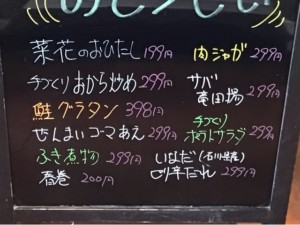 菜花のおひたし 199円
手づくりおから炒め 299円
鮭グラタン 398円
ぜんまいコーマあえ 299円
ふき煮物 299円
春巻 200円
肉ジャガ 299円
サバ
竜田揚 299円
手づくり
ポテトサラダ 299円
いなだ(石川県産)
ピリ辛たれ 299円